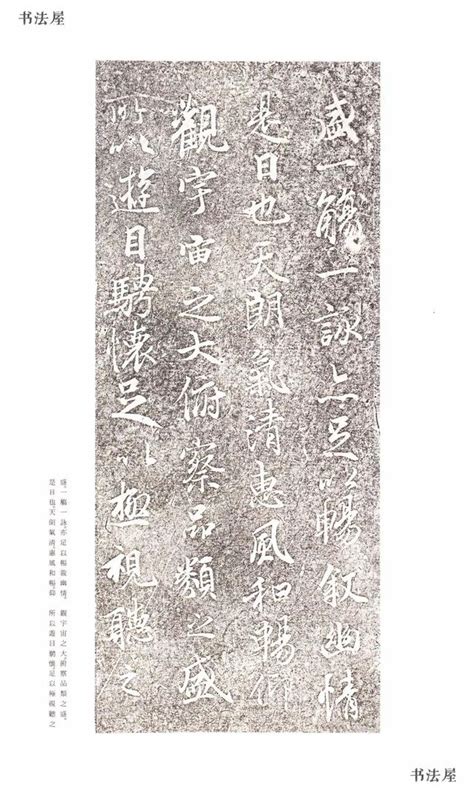 书法屋
盛一觴一詠亦足以暢叙幽情
是日也天朗氣清惠風和暢仰
觀宇宙之大俯察品類之盛
所以遊目騁懷足以極視聽之
盛。一觴一詠，亦足以暢叙幽情。
是日也，天朗氣清，惠風和暢，仰
觀宇宙之大，俯察品類之盛，
所以遊目騁懷，足以極視聽之
书法屋